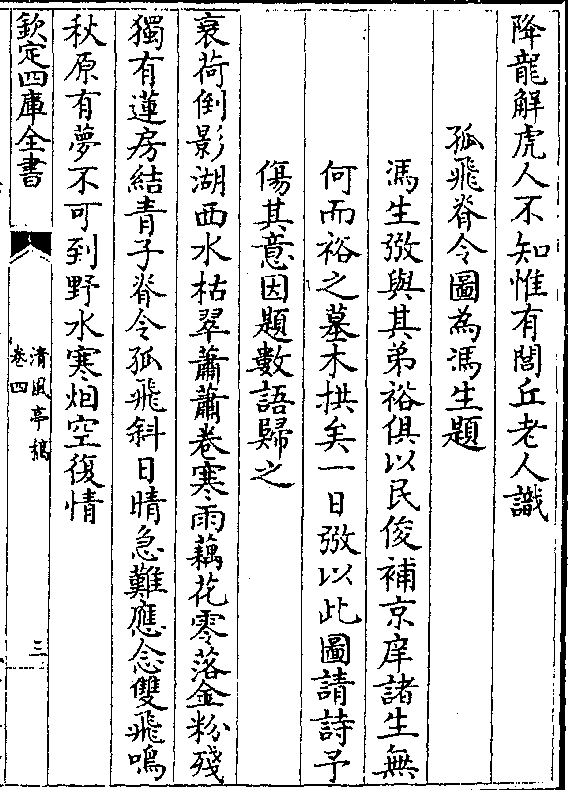 降龍解虎人不知惟有閭丘老人識
孤飛脊令圖為馮生題
馮生弢與其弟裕俱以民俊補京庠諸生無
何而裕之墓木拱矣一日弢以此圖請詩予
傷其意因題數語歸之
衰荷倒影湖西水枯翠蕭蕭卷寒雨藕花零落金粉殘
獨有蓮房結青子脊令孤飛斜日晴急難應念雙飛鳴
秋原有夢不可到野水寒烟空復情
欽定四庫全書
清風亭稿
卷四
三